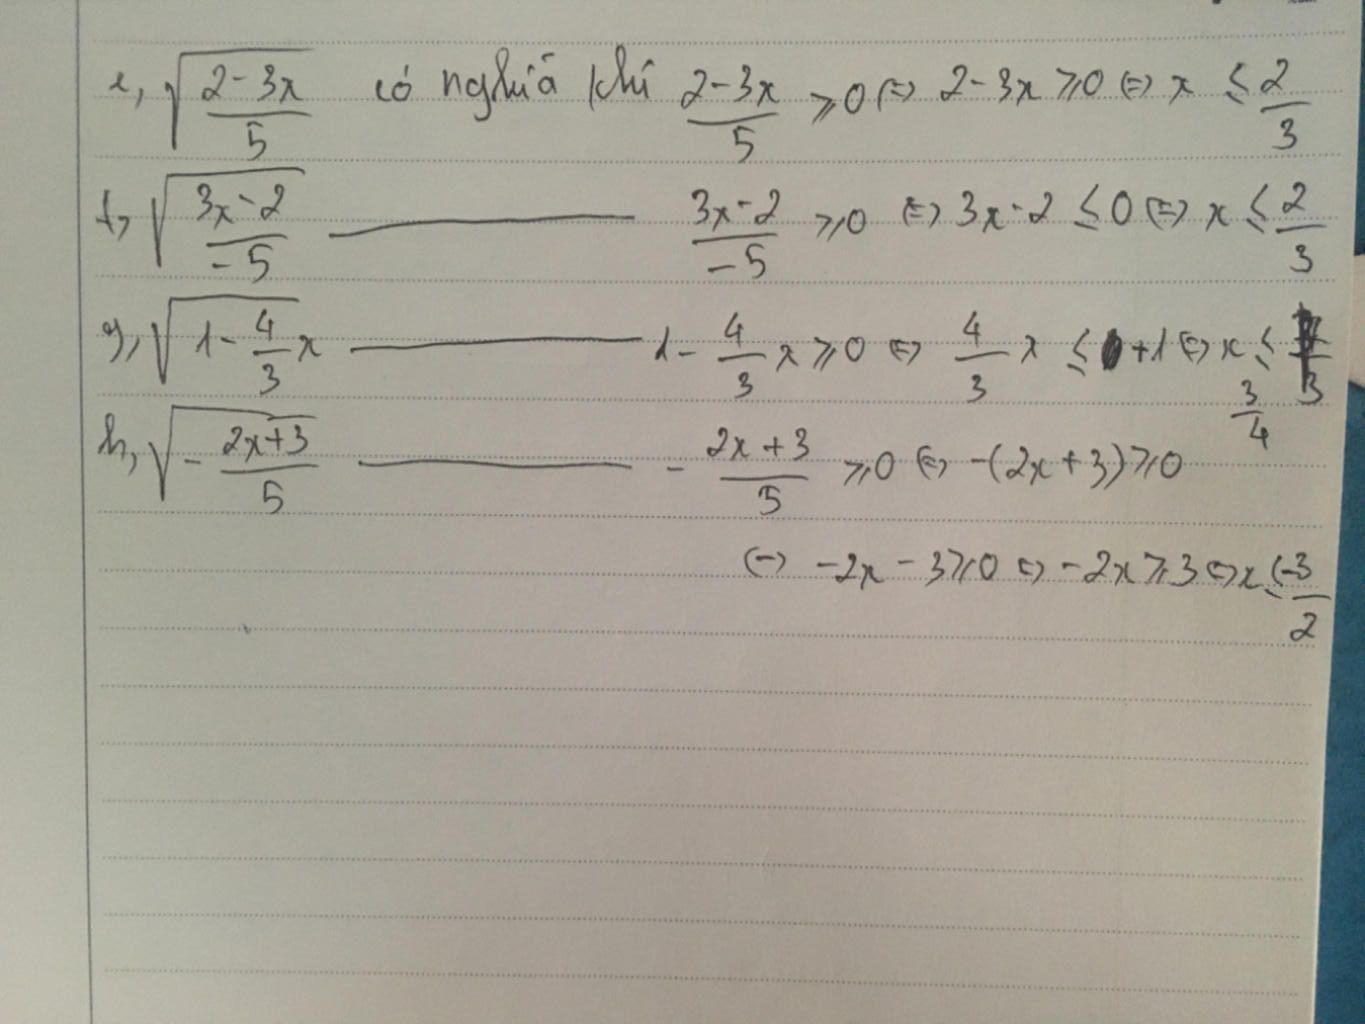 e, √((2-3x)/5) có nghĩa khi (2-3x)/5 ⩾0 ⇔ 2-3x ⩾0 ⇔ x ≤ 2/3
f, √((3x-2)/-5) ——— (3x-2)/-5 ⩾0 ⇔ 3x-2 ≤ 0 ⇔ x ≤ 2/3
g, √(1-4/3x) ——— 1-4/3x ⩾0 ⇔ 4/3x ≤ +1 ⇔ x ≤ 3/4
h, √(-(2x+3)/5) ——— -(2x+3)/5 ⩾0 ⇔ -(2x+3)⩾0
⇔ -2x-3⩾0 ⇔ -2x⩾3 ⇔ x ≤ -3/2